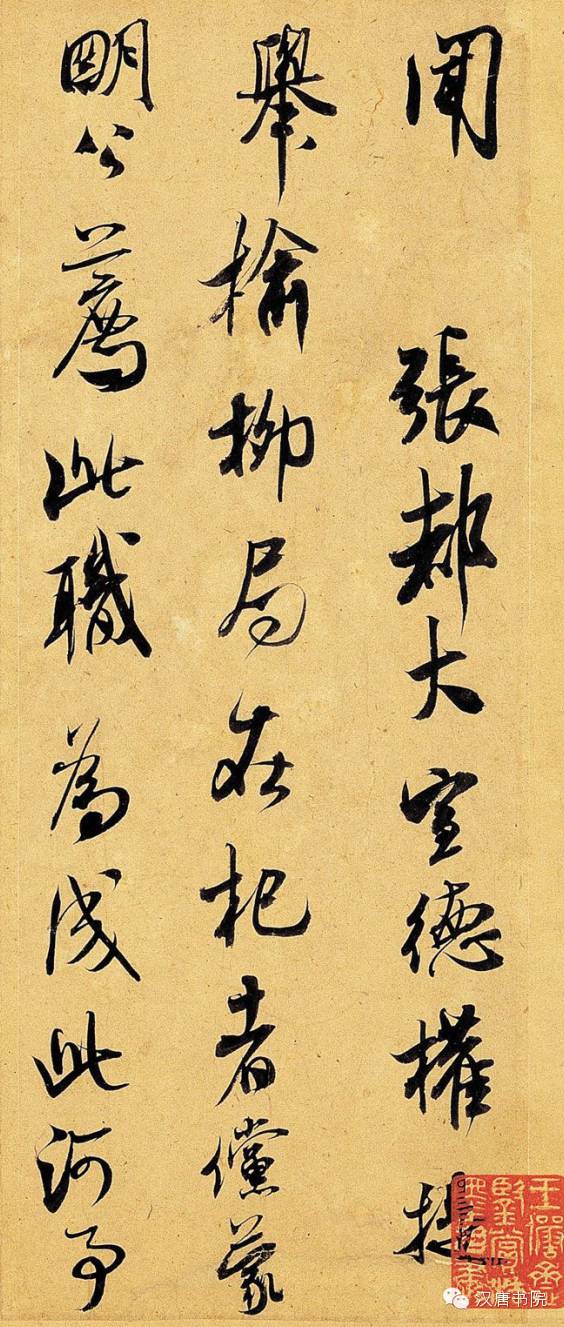 聞張都大宣德權提
舉榆柳局在杞者儻蒙
明公薦此職為成此河事
汉唐书院